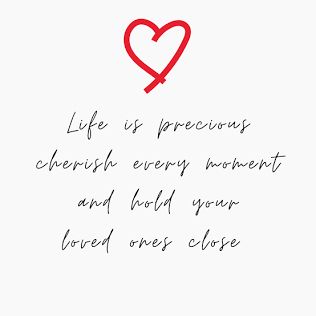 Life is precious
cherish every moment
and hold your
loved ones close